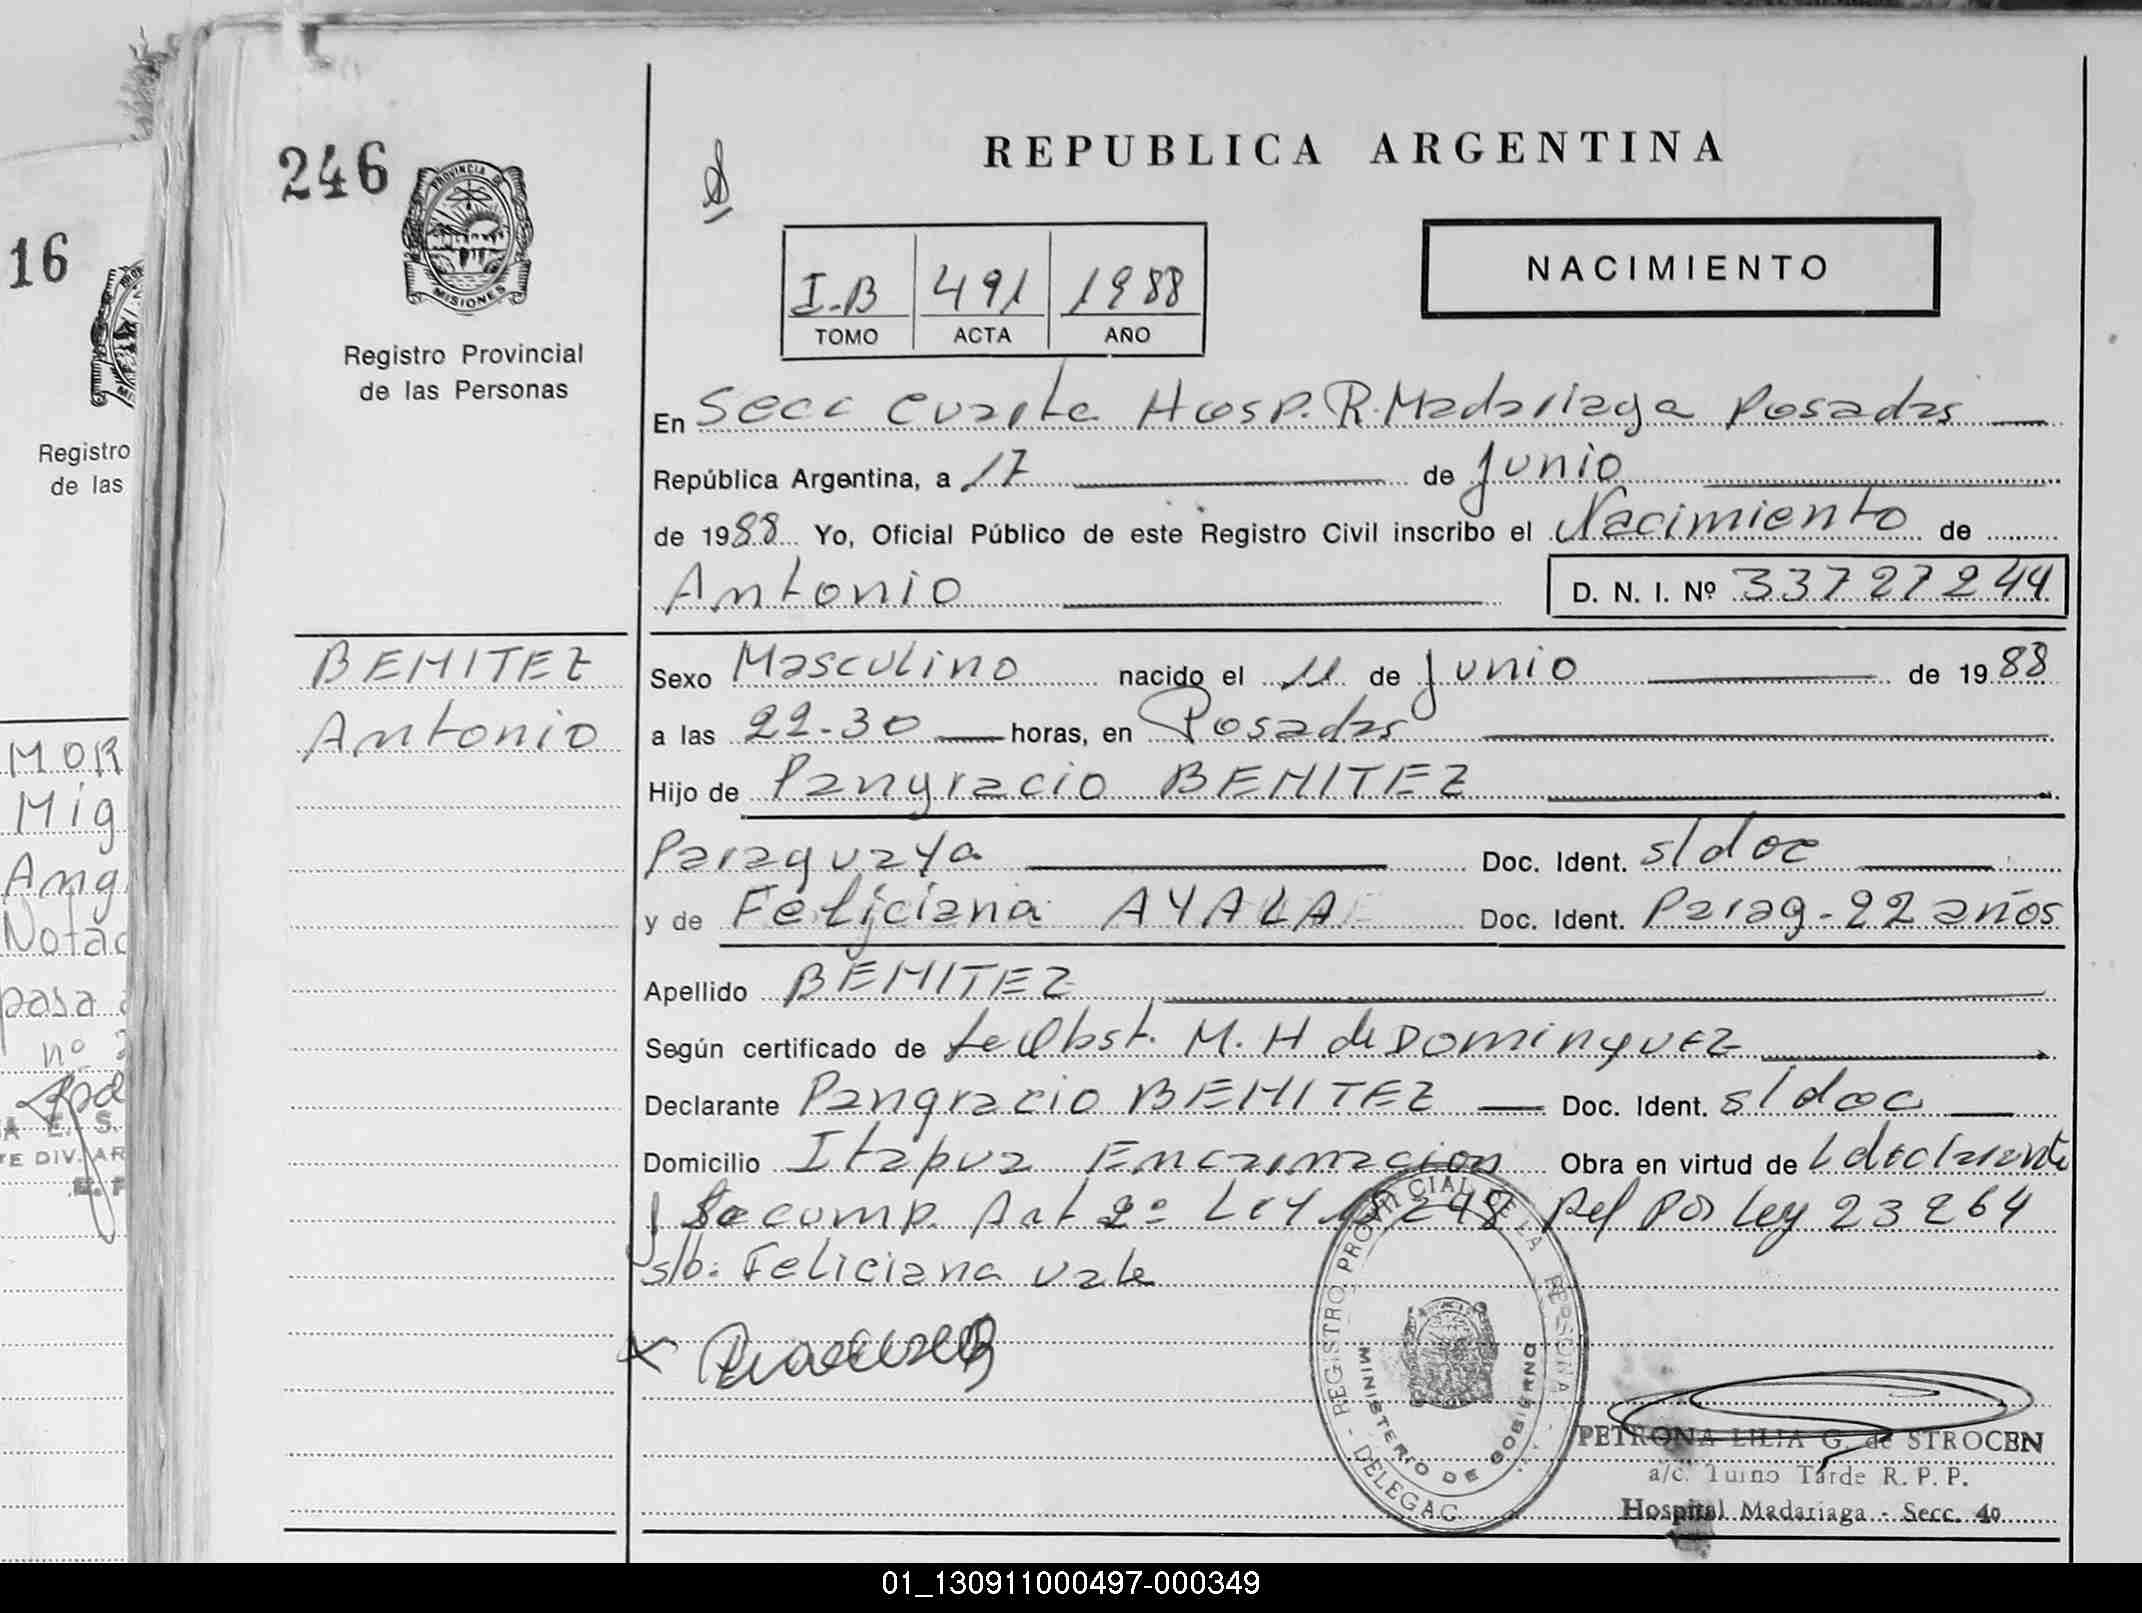 246
PROVINCIA DE
MISIONES
Registro Provincial
de las Personas
16
Registro
de las
REPUBLICA ARGENTINA
NACIMIENTO
I-B 491 1988
TOMO ACTA AÑO
En Secc Cuarta Hosp. R. Madariaga Posadas
República Argentina, a 17 de Junio
de 1988 Yo, Oficial Público de este Registro Civil inscribo el Nacimiento de
Antonio D. N. I. Nº 33727244
BENITEZ
Antonio
Sexo Masculino nacido el 11 de Junio de 1988
a las 22-30 horas, en Posadas
Hijo de Pangracio BENITEZ
Paraguaya Doc. Ident. s/doc
y de Feliciana AYALA Doc. Ident. Parag-22 años
Apellido BENITEZ
Según certificado de la Obst. M. H de Dominguez
Declarante Pangracio BENITEZ Doc. Ident. s/doc
Domicilio Itapua Encarnacion Obra en virtud de
comp. Art 2º Ley 18248 Ley 23264
s/b: Feliciana vale
MOR
Mig
Ang
Notac
pasa
nº
E. S.
TE DIV. AR
REGISTRO PROVINCIAL DE LA PERSONA - DELEGAC
MINISTERIO DE GOBIERNO
PETRONA LILIA G. de STROCEN
a/c. Turno Tarde R. P. P.
Hospital Madariaga - Secc. 4o
01_130911000497-000349